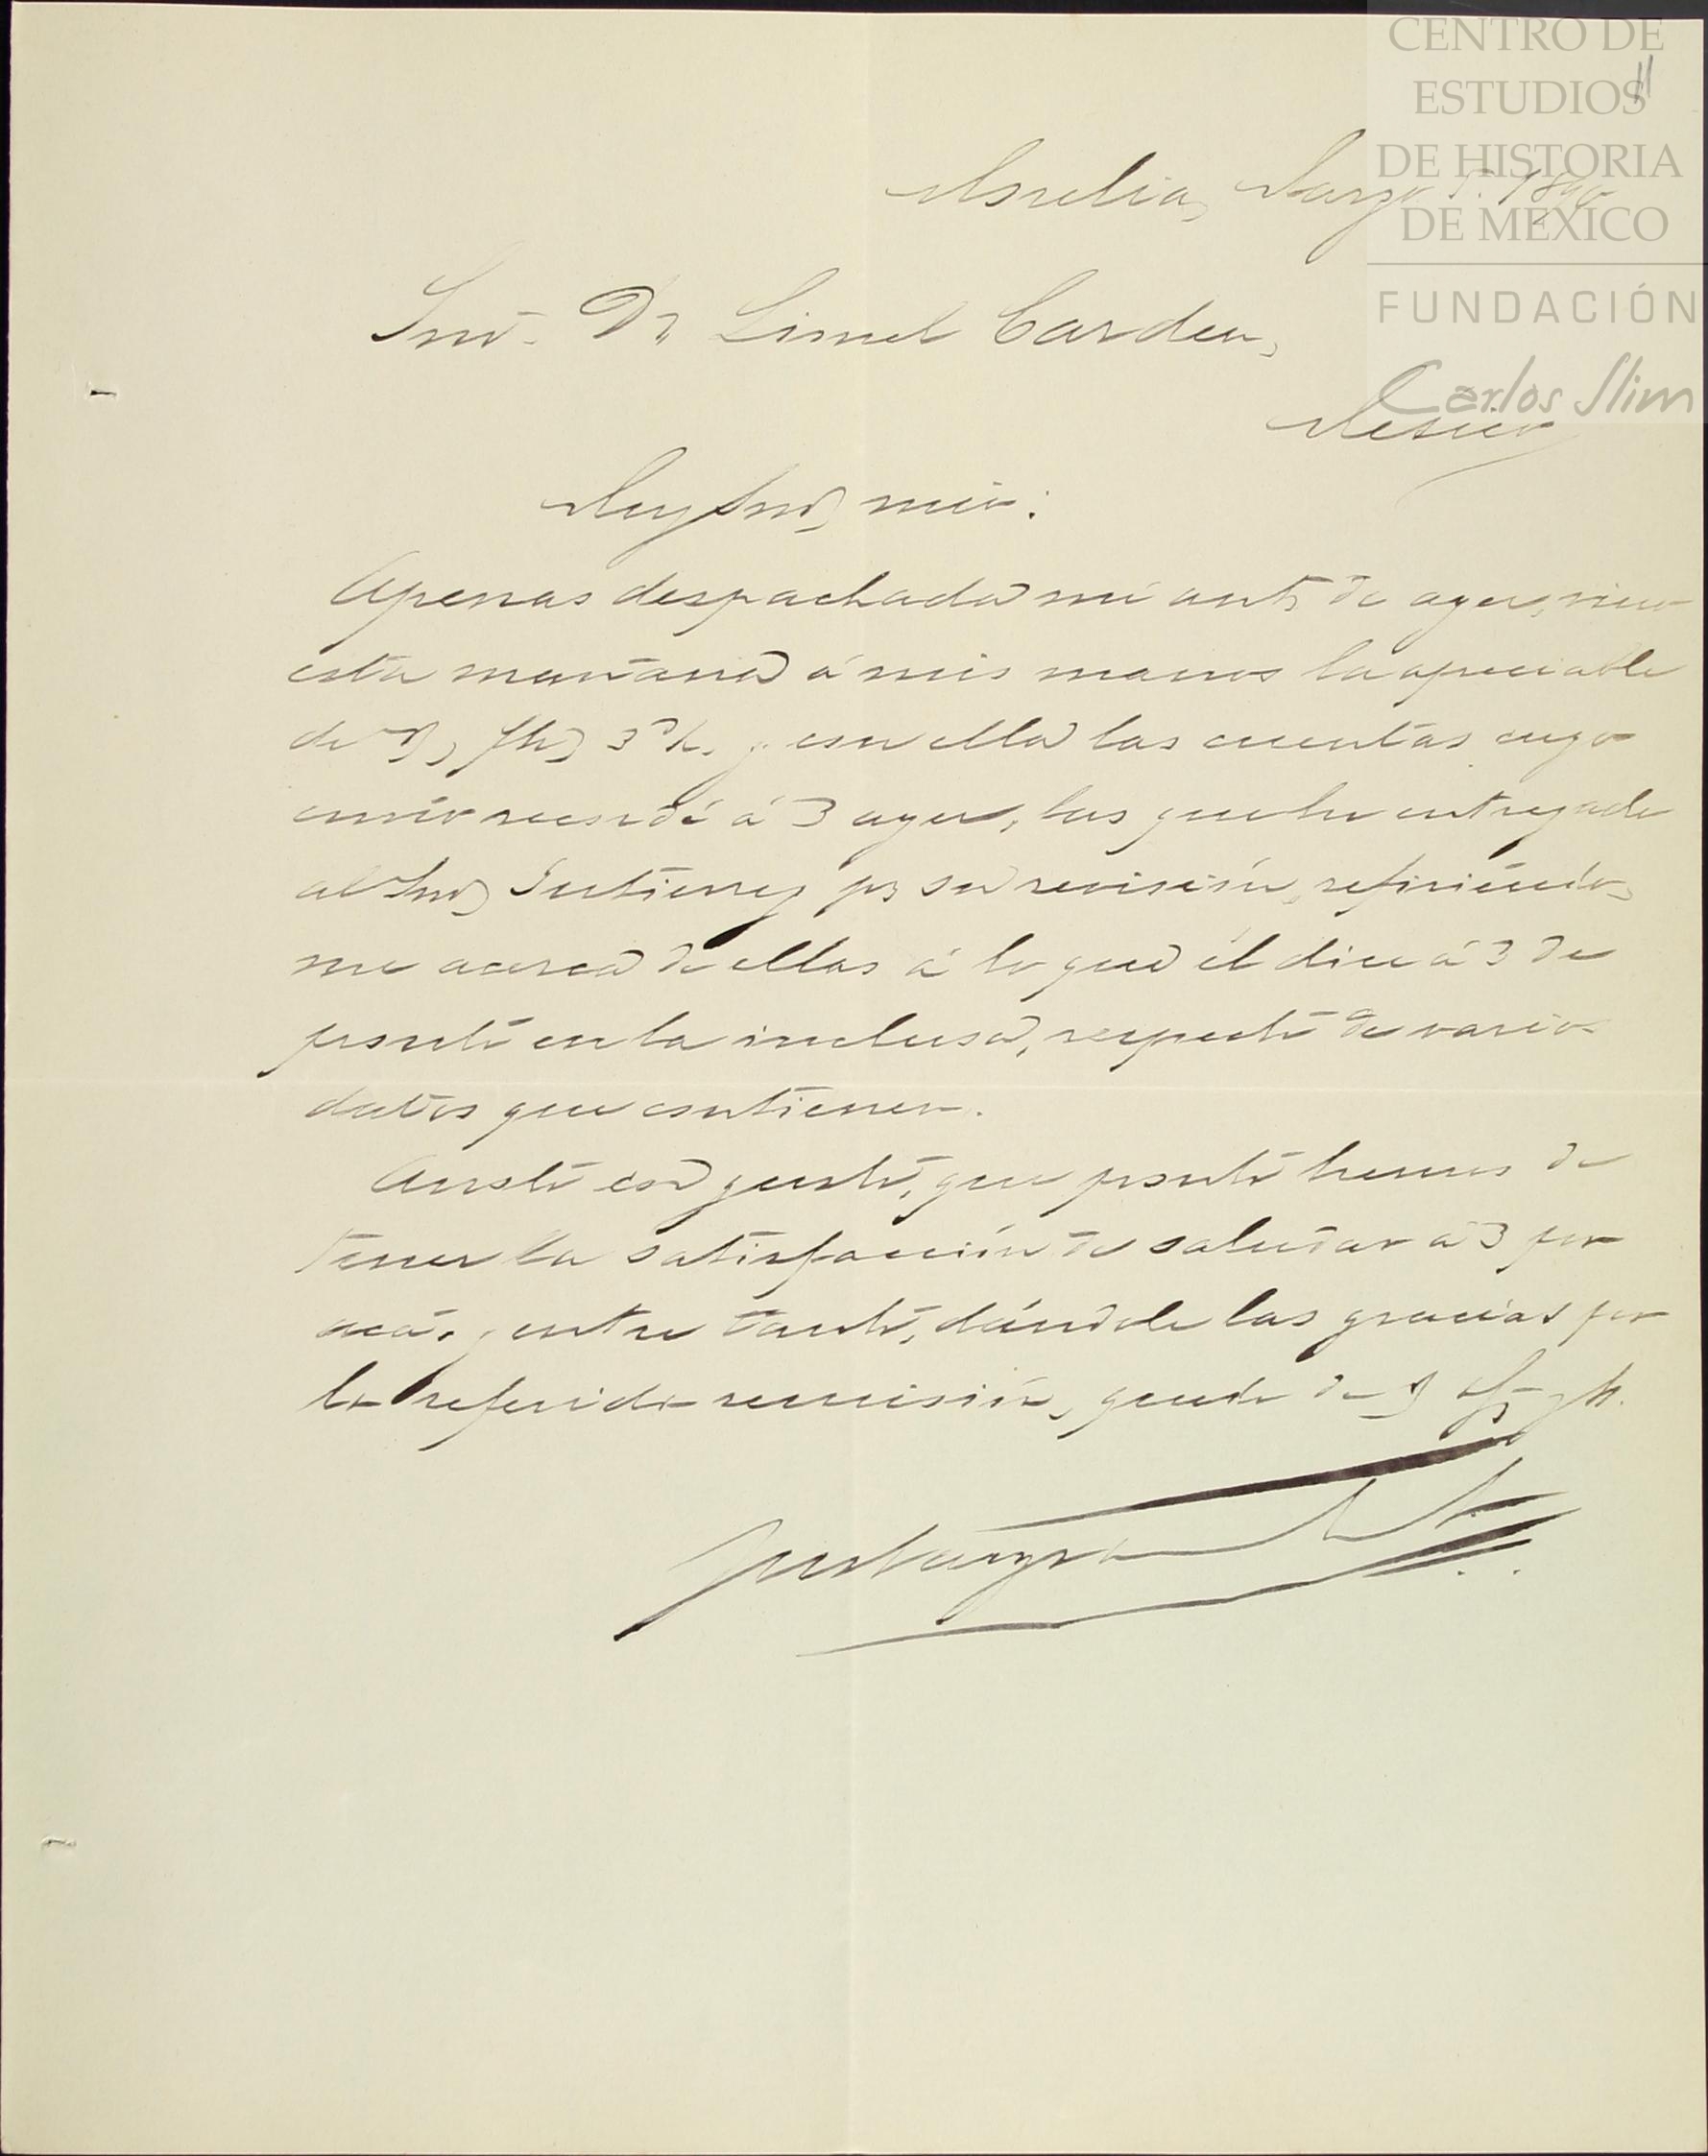 CENTRO DE
ESTUDIOS
DE HISTORIA
DE MÉXICO
FUNDACIÓN
Carlos Slim
11
Morelia, Marzo 5. 1890
Snor. Dn Lionel Carden,
México
Muy Snor mio:
Apenas despachada mi ants de ayer, vino
esta mañana á mis manos la apreciable
de V, fha 3 del y con ella las cuentas cuyo
envío recordé á V ayer, las que he entregado
al Snor Gutierrez pa su revisión, refiriéndo
me acerca de ellas á lo que él dice á V de
pronto en la inclusa, respecto de varios
datos que contienen.
Anoto con gusto, que pronto hemos de
tener la satisfacción de saludar á V por
acá, y entre tanto, dándole las gracias por
la referida remisión, quedo de V